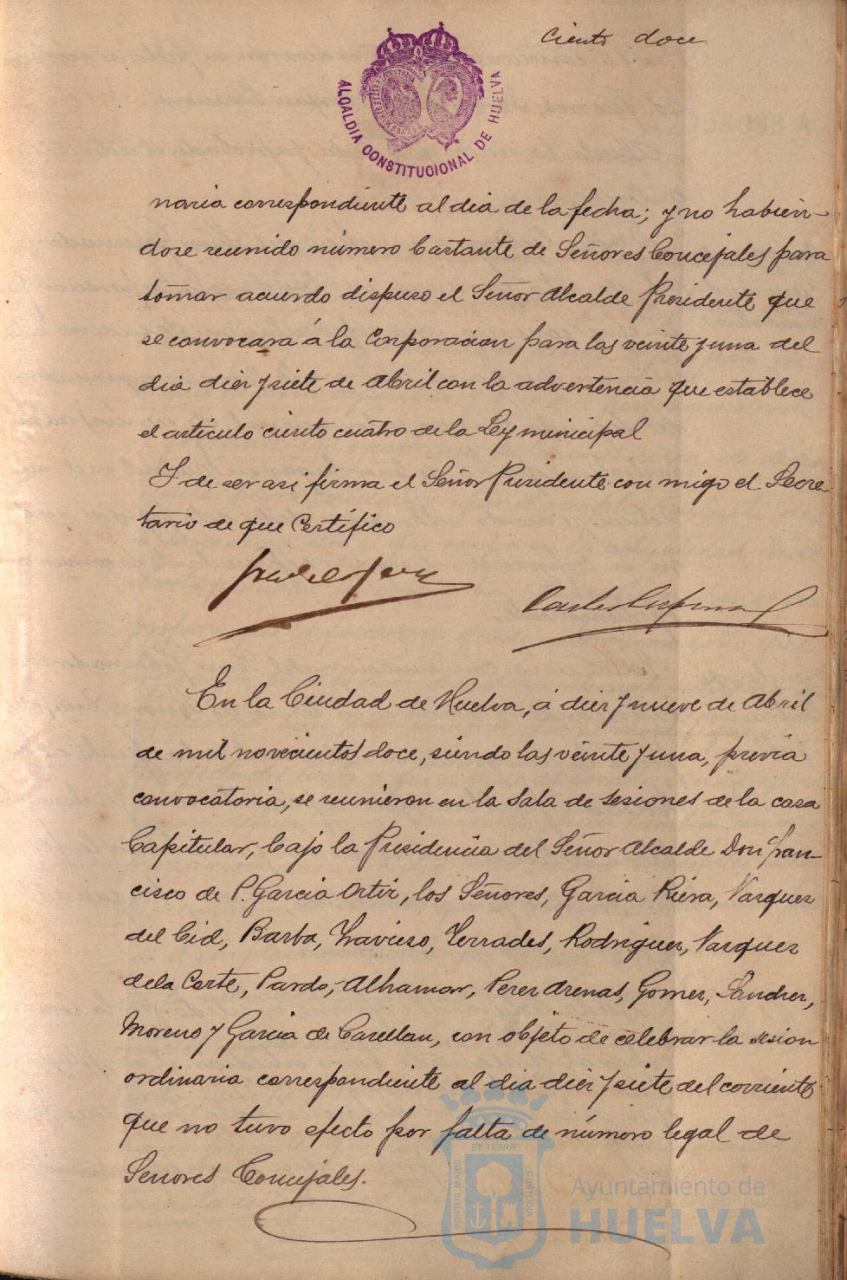 Ciento doce
ALCALDIA CONSTITUCIONAL DE HUELVA
naria correspondiente al dia de la fecha; y no habien-
dose reunido número bastante de Señores Concejales para
tomar acuerdo dispuso el Señor Alcalde Presidente que
se convocará á la Corporacion para las veinte y una del
dia diez y siete de Abril con la advertencia que establece
el articulo ciento cuatro de la Ley municipal
Y de ser asi firma el Señor Presidente con migo el Secre-
tario de que Certifico
En la Ciudad de Huelva, á diez y nueve de Abril
de mil novecientos doce, siendo las veinte y una, previa
convocatoria, se reunieron en la Sala de sesiones de la casa
Capitular, bajo la Presidencia del Señor Alcalde Don Fran-
cisco de P. Garcia Ortiz, los Señores, Garcia Riera, Vazquez
del Cid, Barba, Travieso, Terrades, Rodriguez, Vazquez
de la Corte, Pardo, Alhamar, Perez Arenas, Gomez, Sanchez,
Moreno y Garcia de Casellan, con objeto de celebrar la sesion
ordinaria correspondiente al dia diez y siete del corriente
que no tuvo efecto por falta de número legal de
Señores Concejales.
PORTUS MARIS ET TERRAE CUSTODIA
Ayuntamiento de
HUELVA